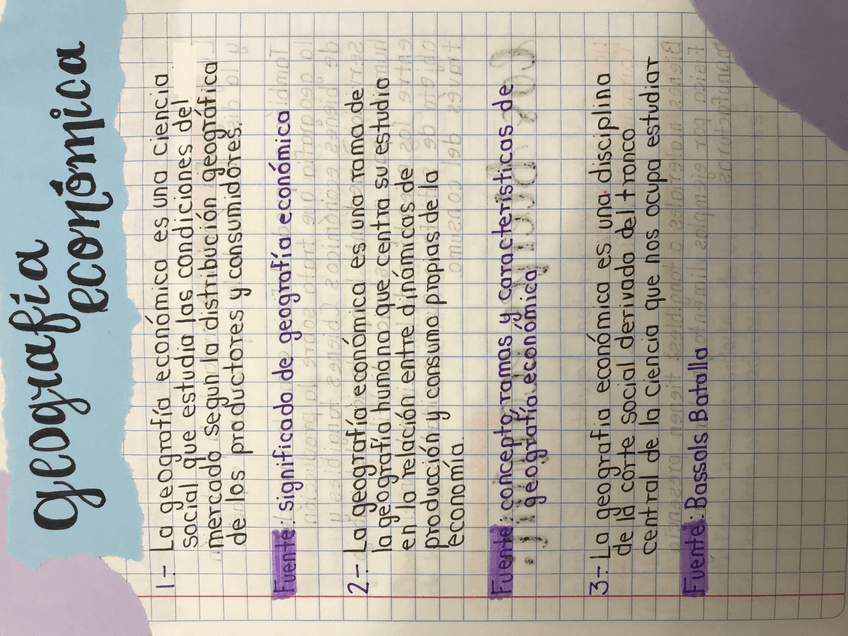 geografía
económica
1- La geografía económica es una ciencia
social que estudia las condiciones del
mercado segun la distribución geográfica
de los productores y consumidores.
Fuente: significado de geografía económica
2- La geografía económica es una rama de
la geografía humana que centra su estudio
en la relación entre dinámicas de
producción y consumo propias de la
economía.
Fuente: concepto, ramas y características de
geografía económica
3- La geografía económica es una disciplina
de la corte social derivada del tronco
central de la ciencia que nos ocupa estudiar
Fuente: Bassols Batalla